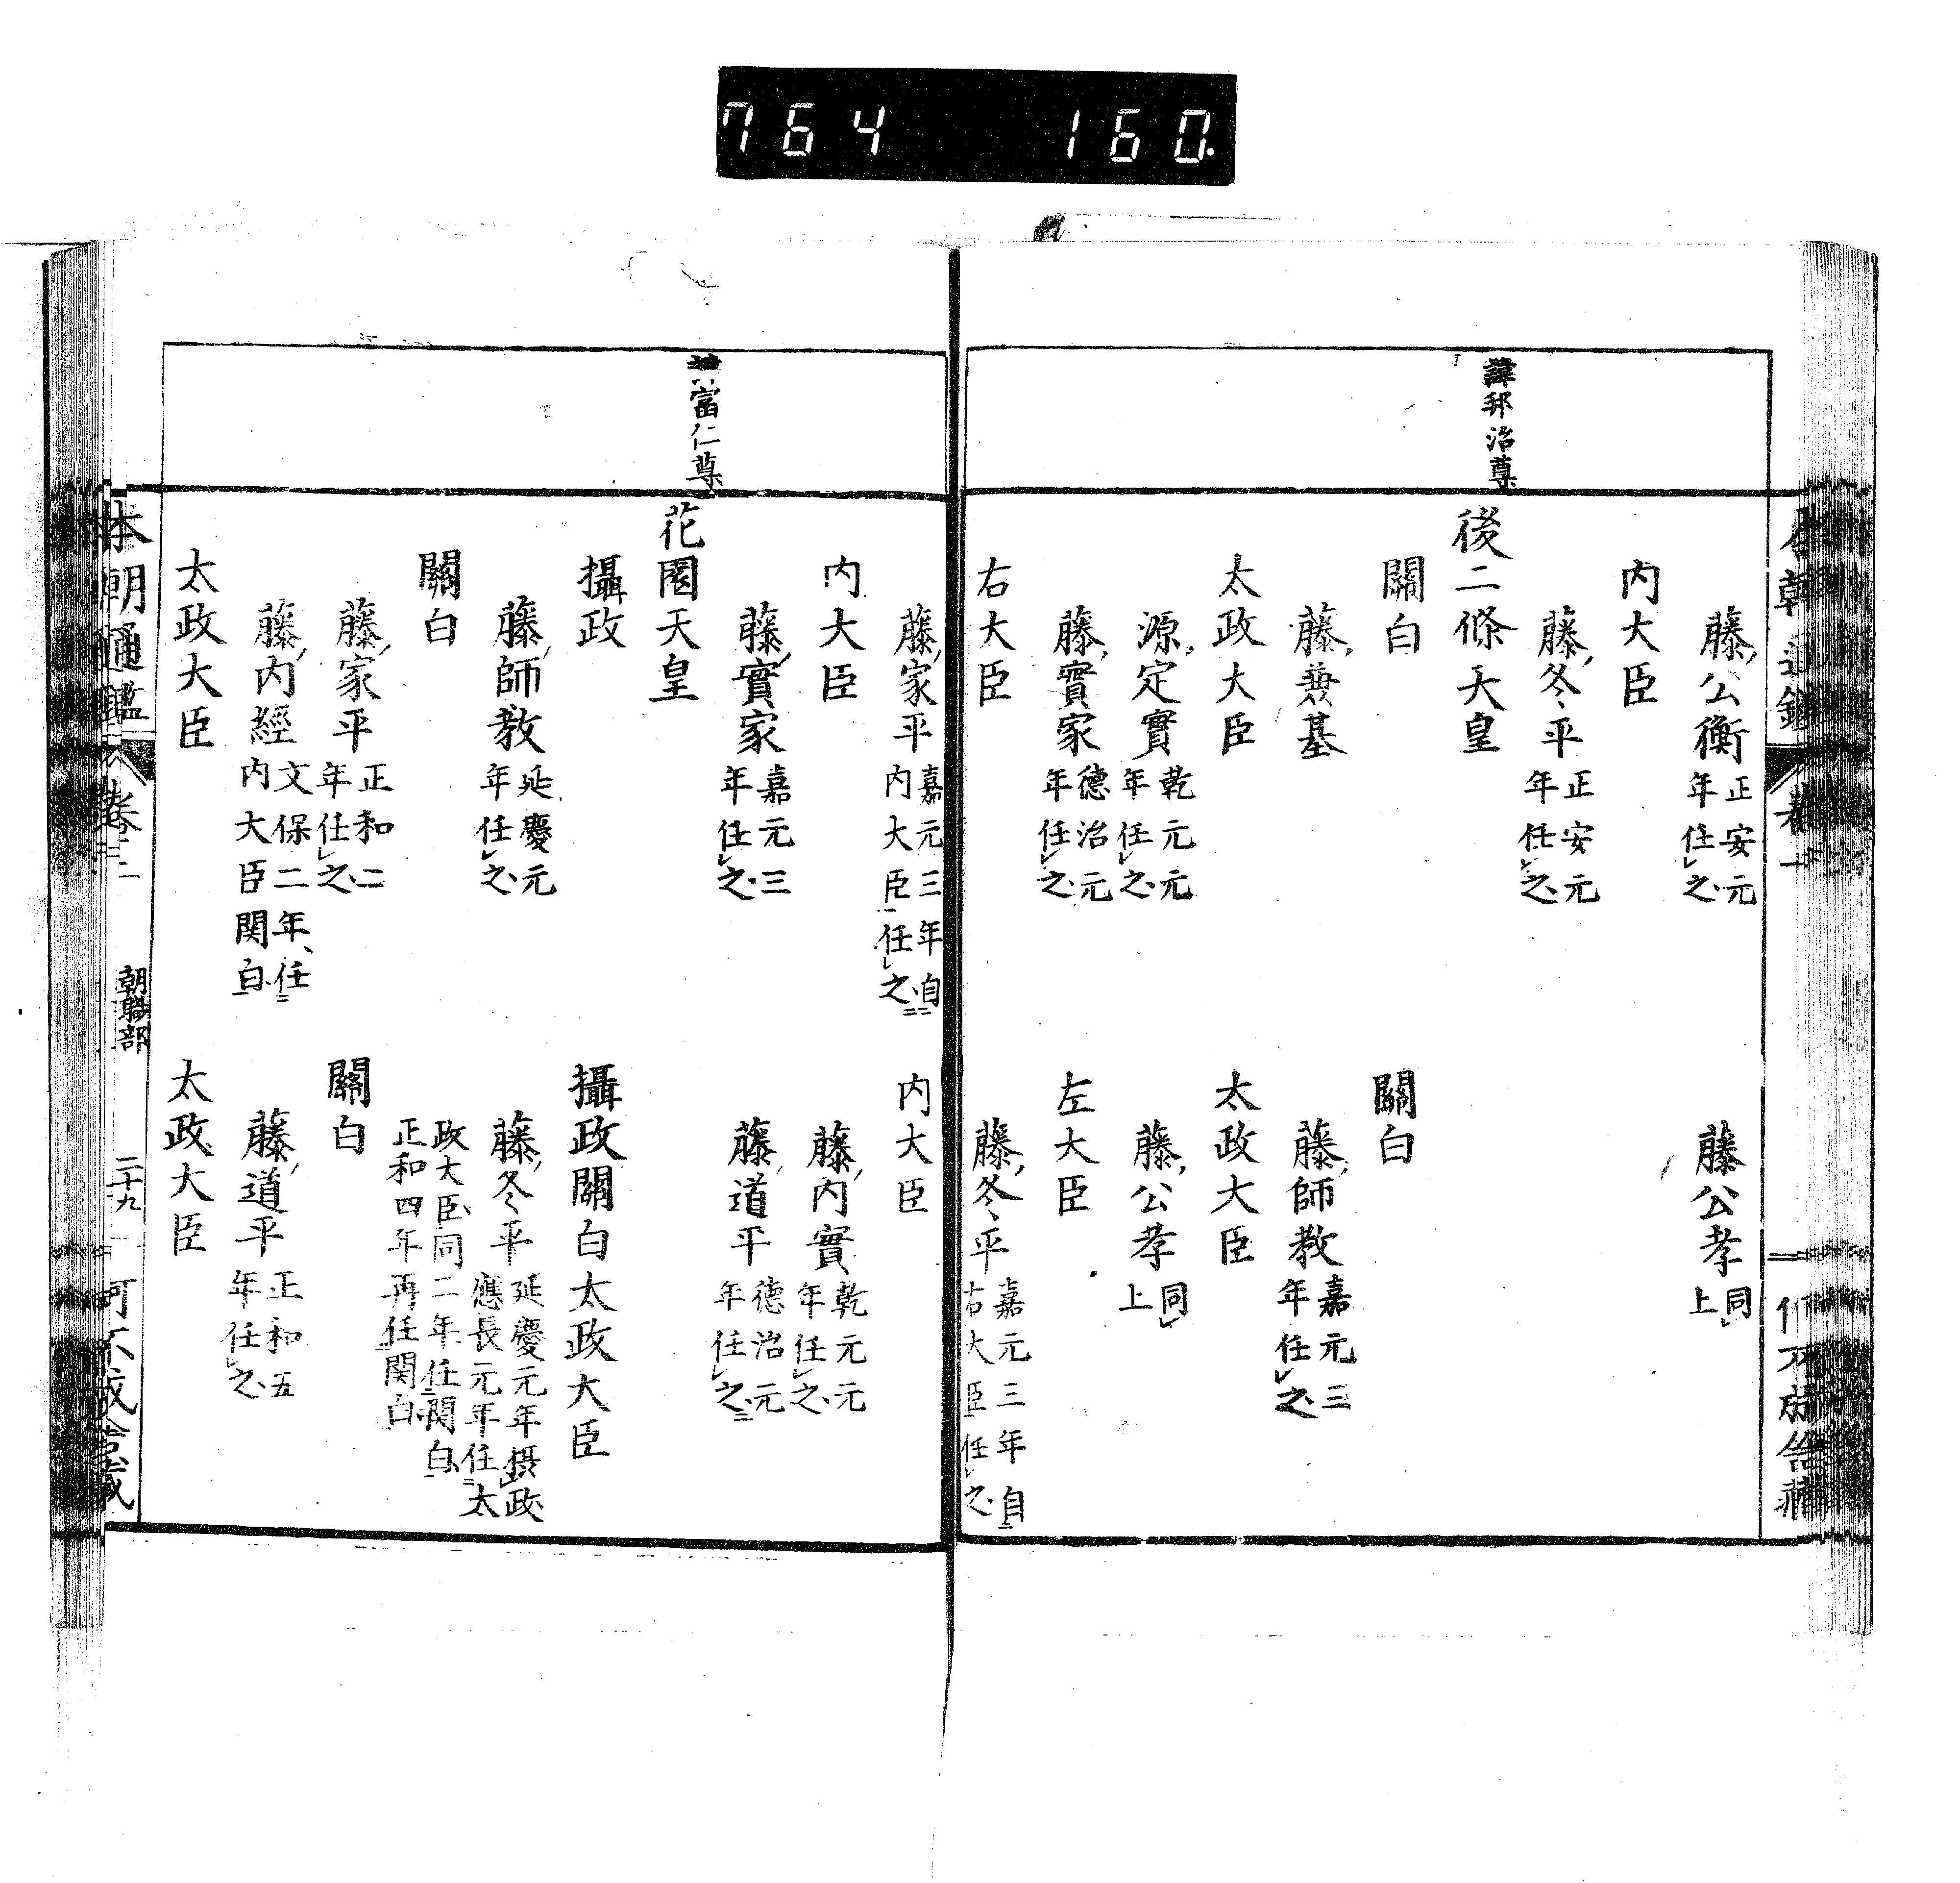 764 160.
藤公衡 正安元年任之
藤公孝 同上
内大臣
藤冬平 正安元年任之
諱邦治尊
後二條天皇
關白
關白
藤兼基
藤師教 嘉元三年任之
太政大臣
太政大臣
源定實 乾元元年任之
藤公孝 同上
藤實家 德治元年任之
左大臣
右大臣
藤冬平 嘉元三年自右大臣任之
藤家平 嘉元三年自内大臣任之
内大臣
内大臣
藤内實 乾元元年任之
藤實家 嘉元三年任之
藤道平 德治元年任之
富仁尊
花園天皇
攝政
攝政關白太政大臣
藤師教 延慶元年任之
藤冬平 延慶元年摂政應長元年任太
政大臣同二年任関白
正和四年再任関白
關白
關白
藤家平 正和二年任之
藤内經 文保二年任内大臣関白
藤道平 正和五年任之
太政大臣
太政大臣
本朝通鑑 卷二 朝職部 二十九